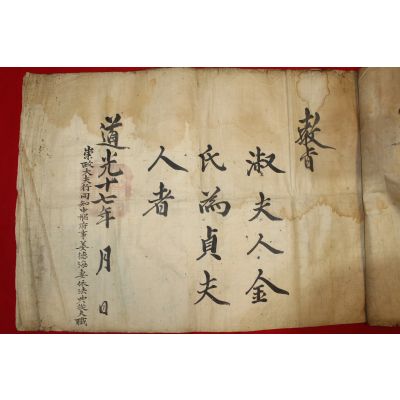 教旨
淑夫人金
氏為貞夫
人者
道光十七年 月 日
崇政大夫行同知中樞府事姜德海妻依法典從夫職